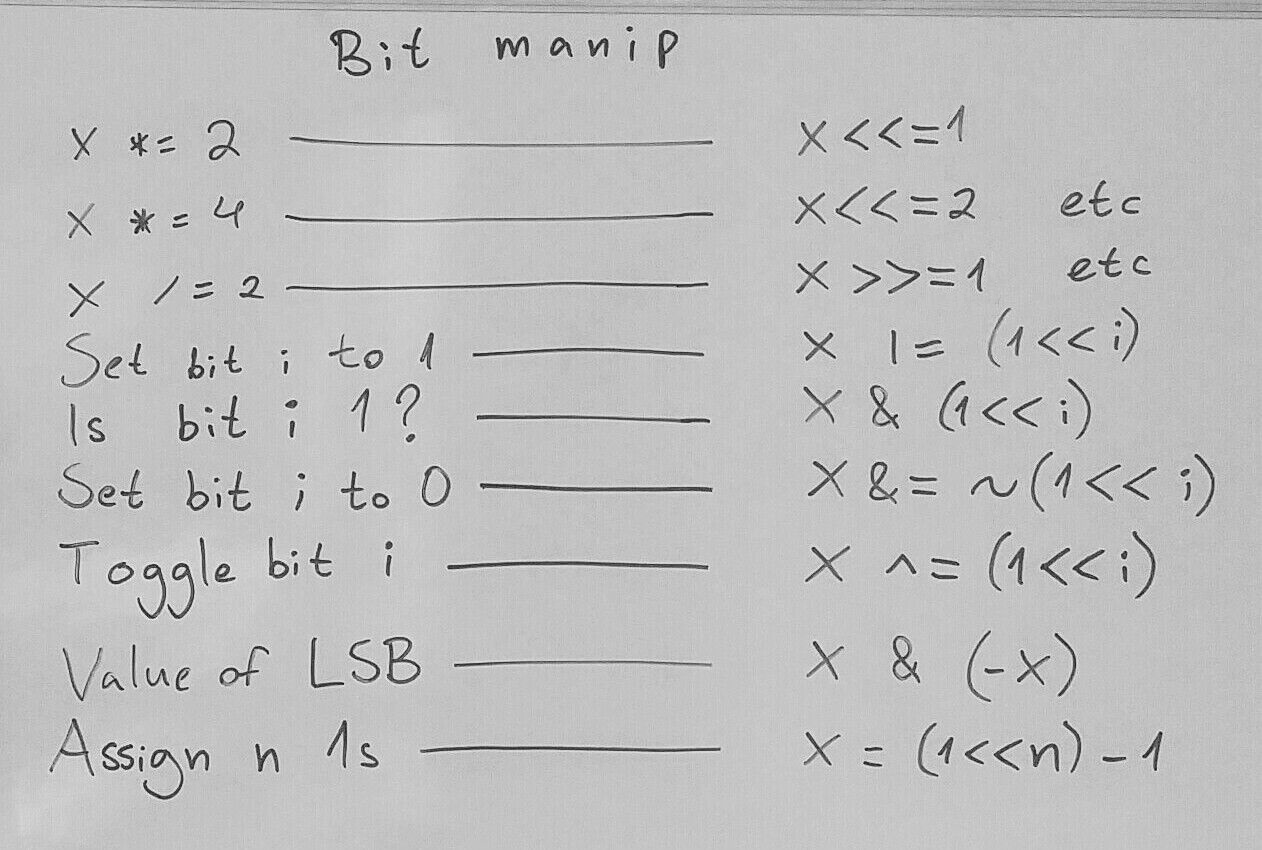 Bit manip
x *= 2 x<<=1
x *= 4 x<<=2 etc
x /= 2 x >>=1 etc
Set bit i to 1 x |= (1<<i)
Is bit i 1? x & (1<<i)
Set bit i to 0 x &= ~(1<< i)
Toggle bit i x ^= (1<<i)
Value of LSB x & (-x)
Assign n 1s x = (1<<n) - 1